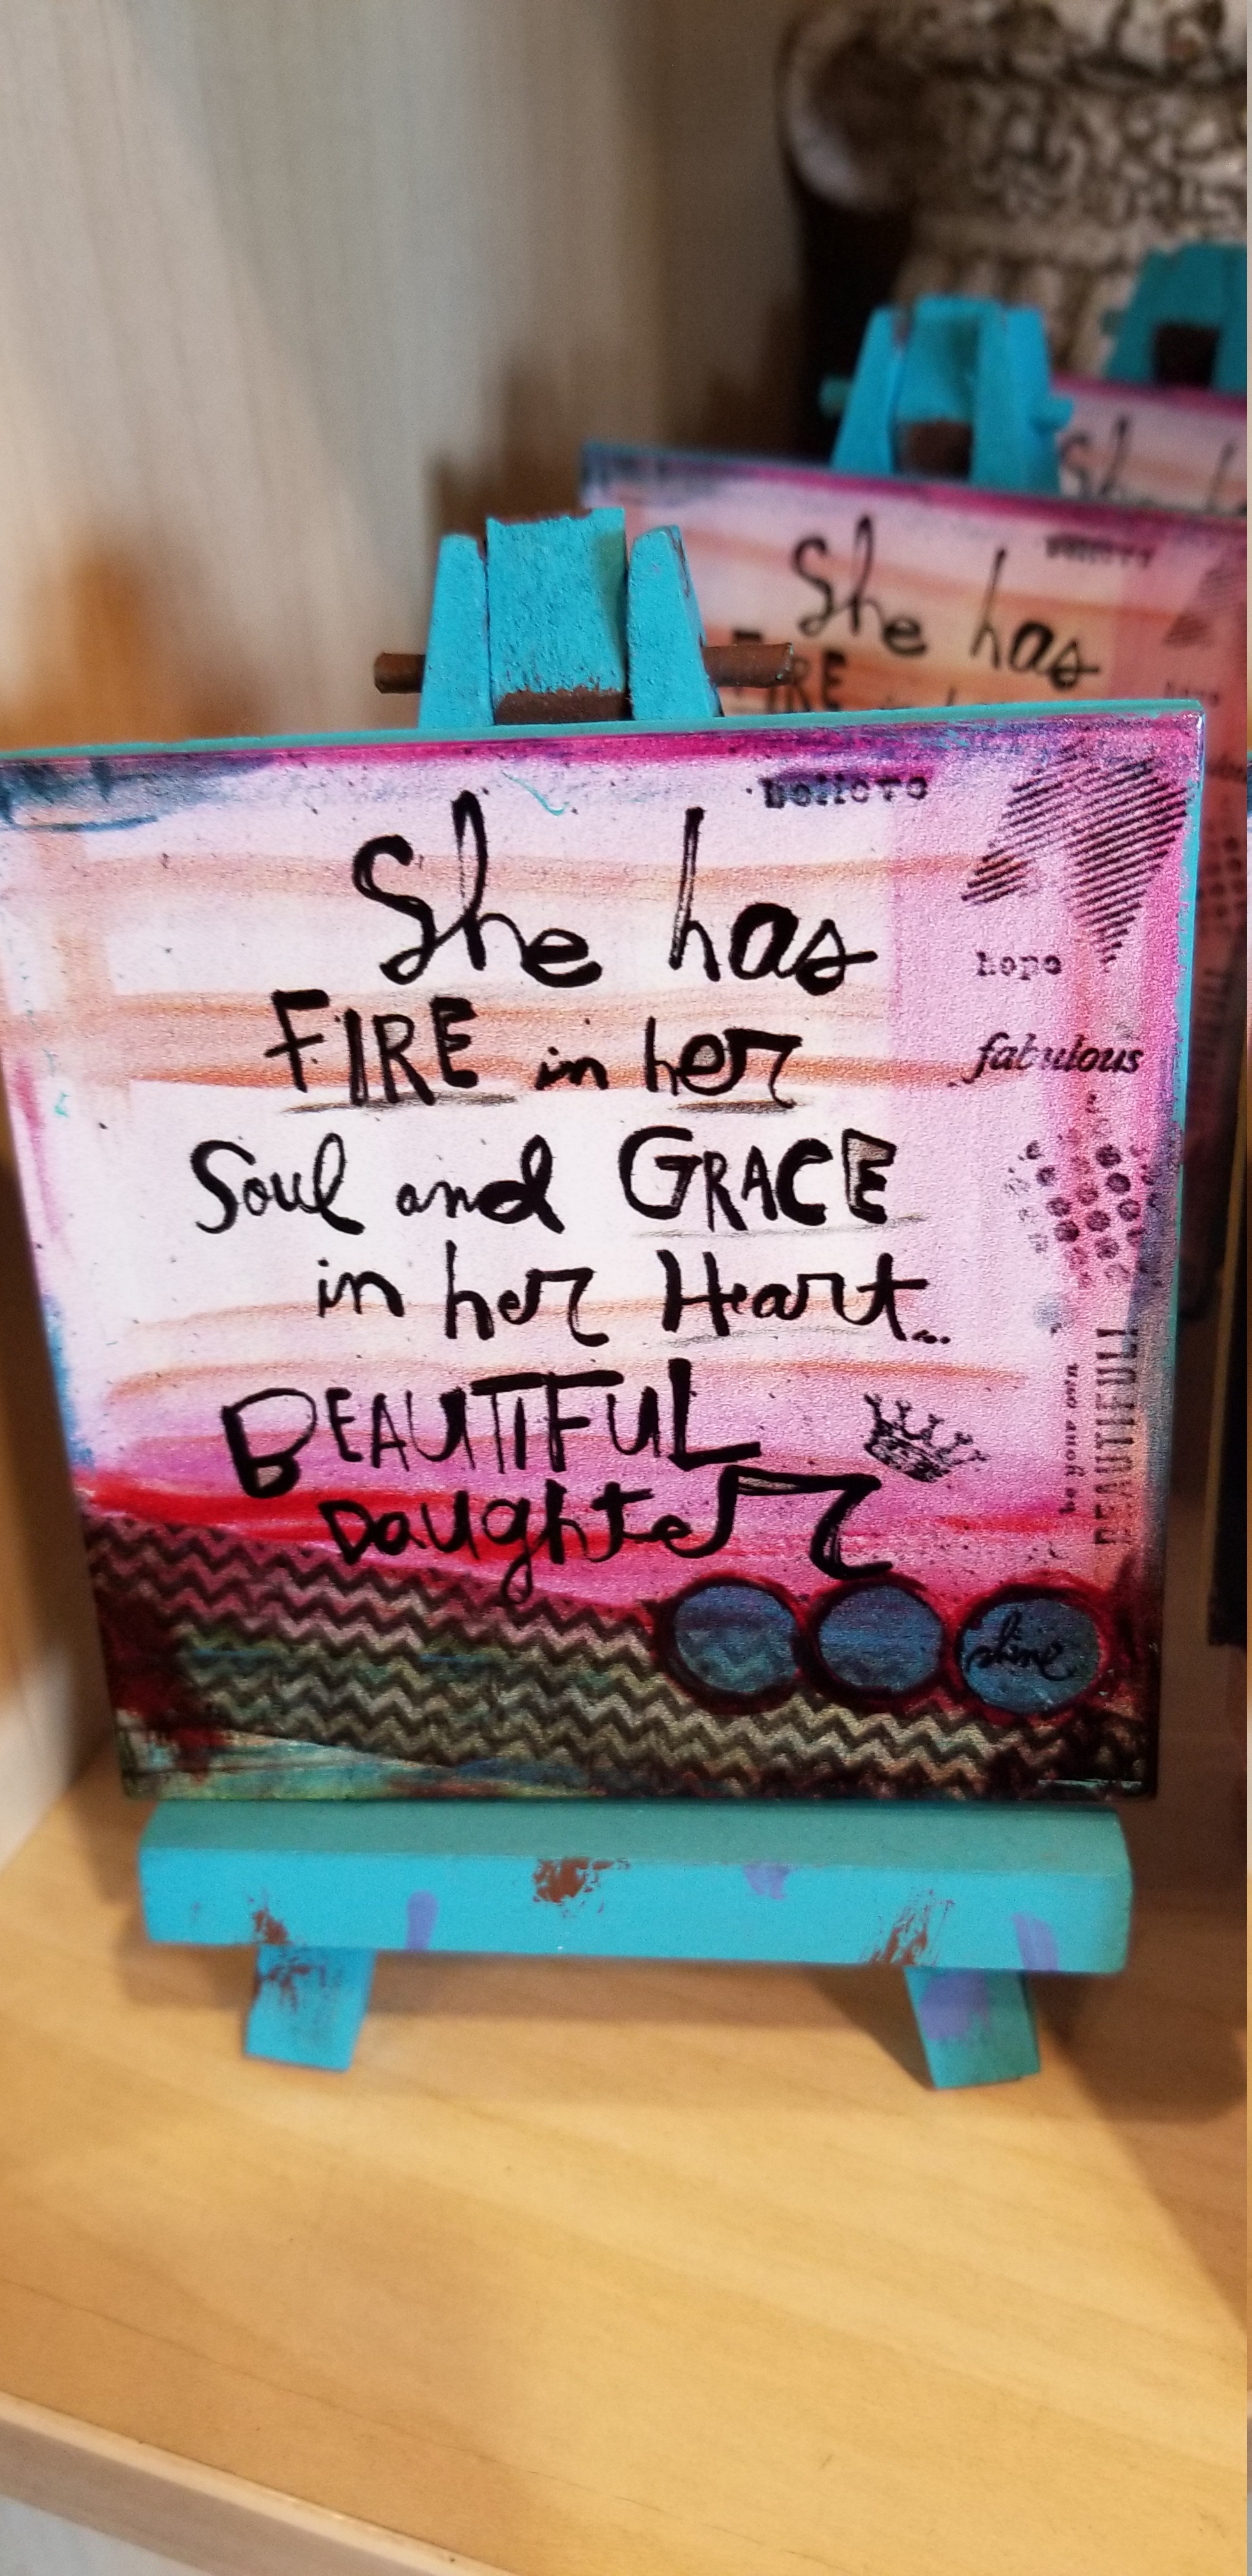 believe
She has
FIRE in her
Soul and GRACE
in her Heart...
BEAUTIFUL
Daughter
hope
fabulous
be your own
BEAUTIFUL
shine
She has
FIRE
She h